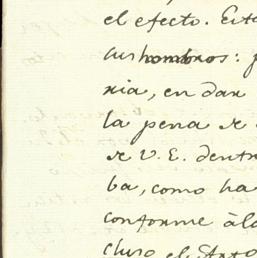 el efecto. Esta
cushombros: p
ria, en dar
la pena se
se V. E. dentr
ba, como ha
conforme à la
cluso el Anto